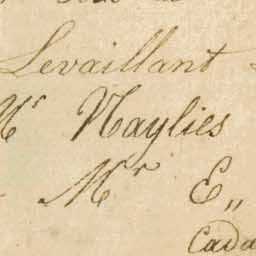 Levaillant
Mr Naylies
Mr E,,
Cada